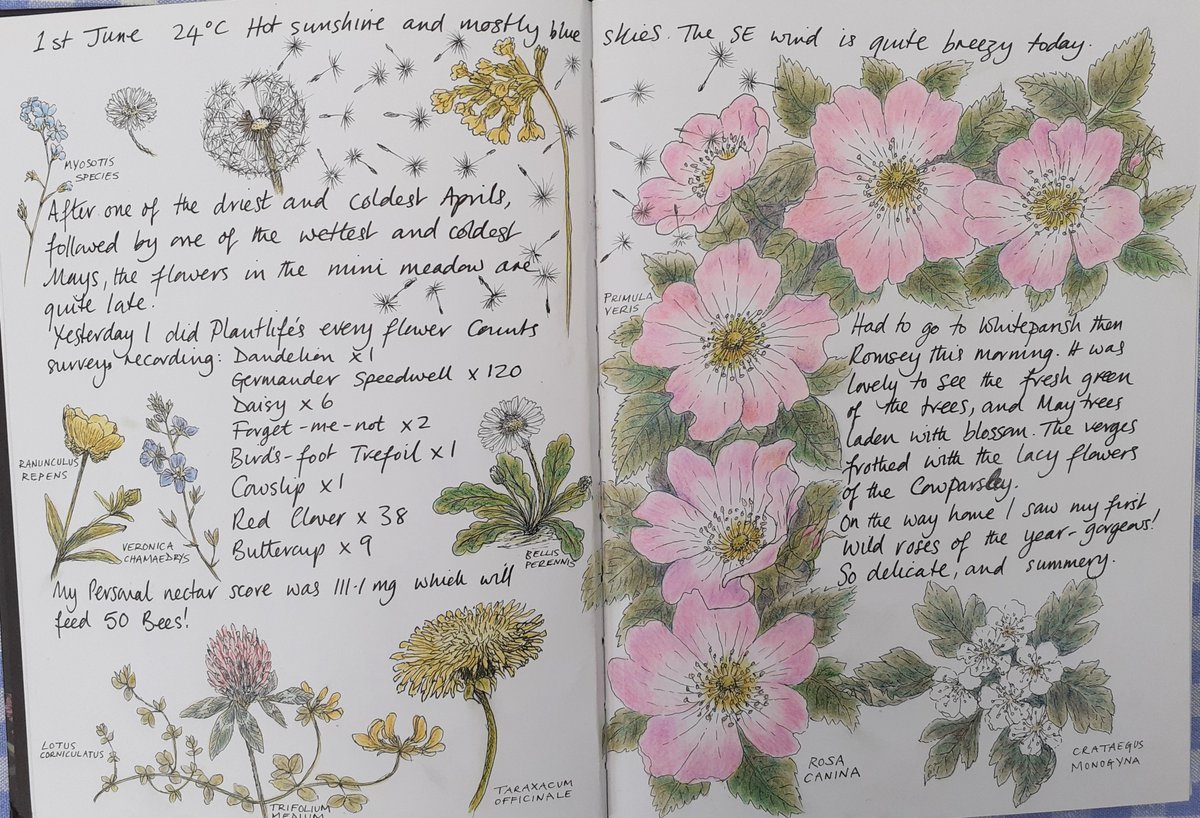 1st June 24°C Hot sunshine and mostly blue skies. The SE wind is quite breezy today.
MYOSOTIS
SPECIES
After one of the driest and coldest Aprils,
followed by one of the wettest and coldest
Mays, the flowers in the mini meadow are
quite late!
Yesterday I did Plantlife's every flower Counts
survey, recording: Dandelion x 1
Germander Speedwell x 120
Daisy x 6
Forget-me-not x 2
Birds-foot Trefoil x 1
Cowslip x 1
Red Clover x 38
Buttercup x 9
RANUNCULUS
REPENS
VERONICA
CHAMAEDRYS
BELLIS
PERENNIS
My Personal nectar score was 111.1 mg which will
feed 50 Bees!
LOTUS
CORNICULATUS
TRIFOLIUM
MEDIUM
TARAXACUM
OFFICINALE
PRIMULA
VERIS
Had to go to Whiteparish then
Romsey this morning. It was
lovely to see the fresh green
of the trees, and May trees
laden with blossom. The verges
frothed with the lacy flowers
of the Cowparsley.
On the way home I saw my first
wild roses of the year - gorgeous!
So delicate, and summery.
ROSA
CANINA
CRATAEGUS
MONOGYNA